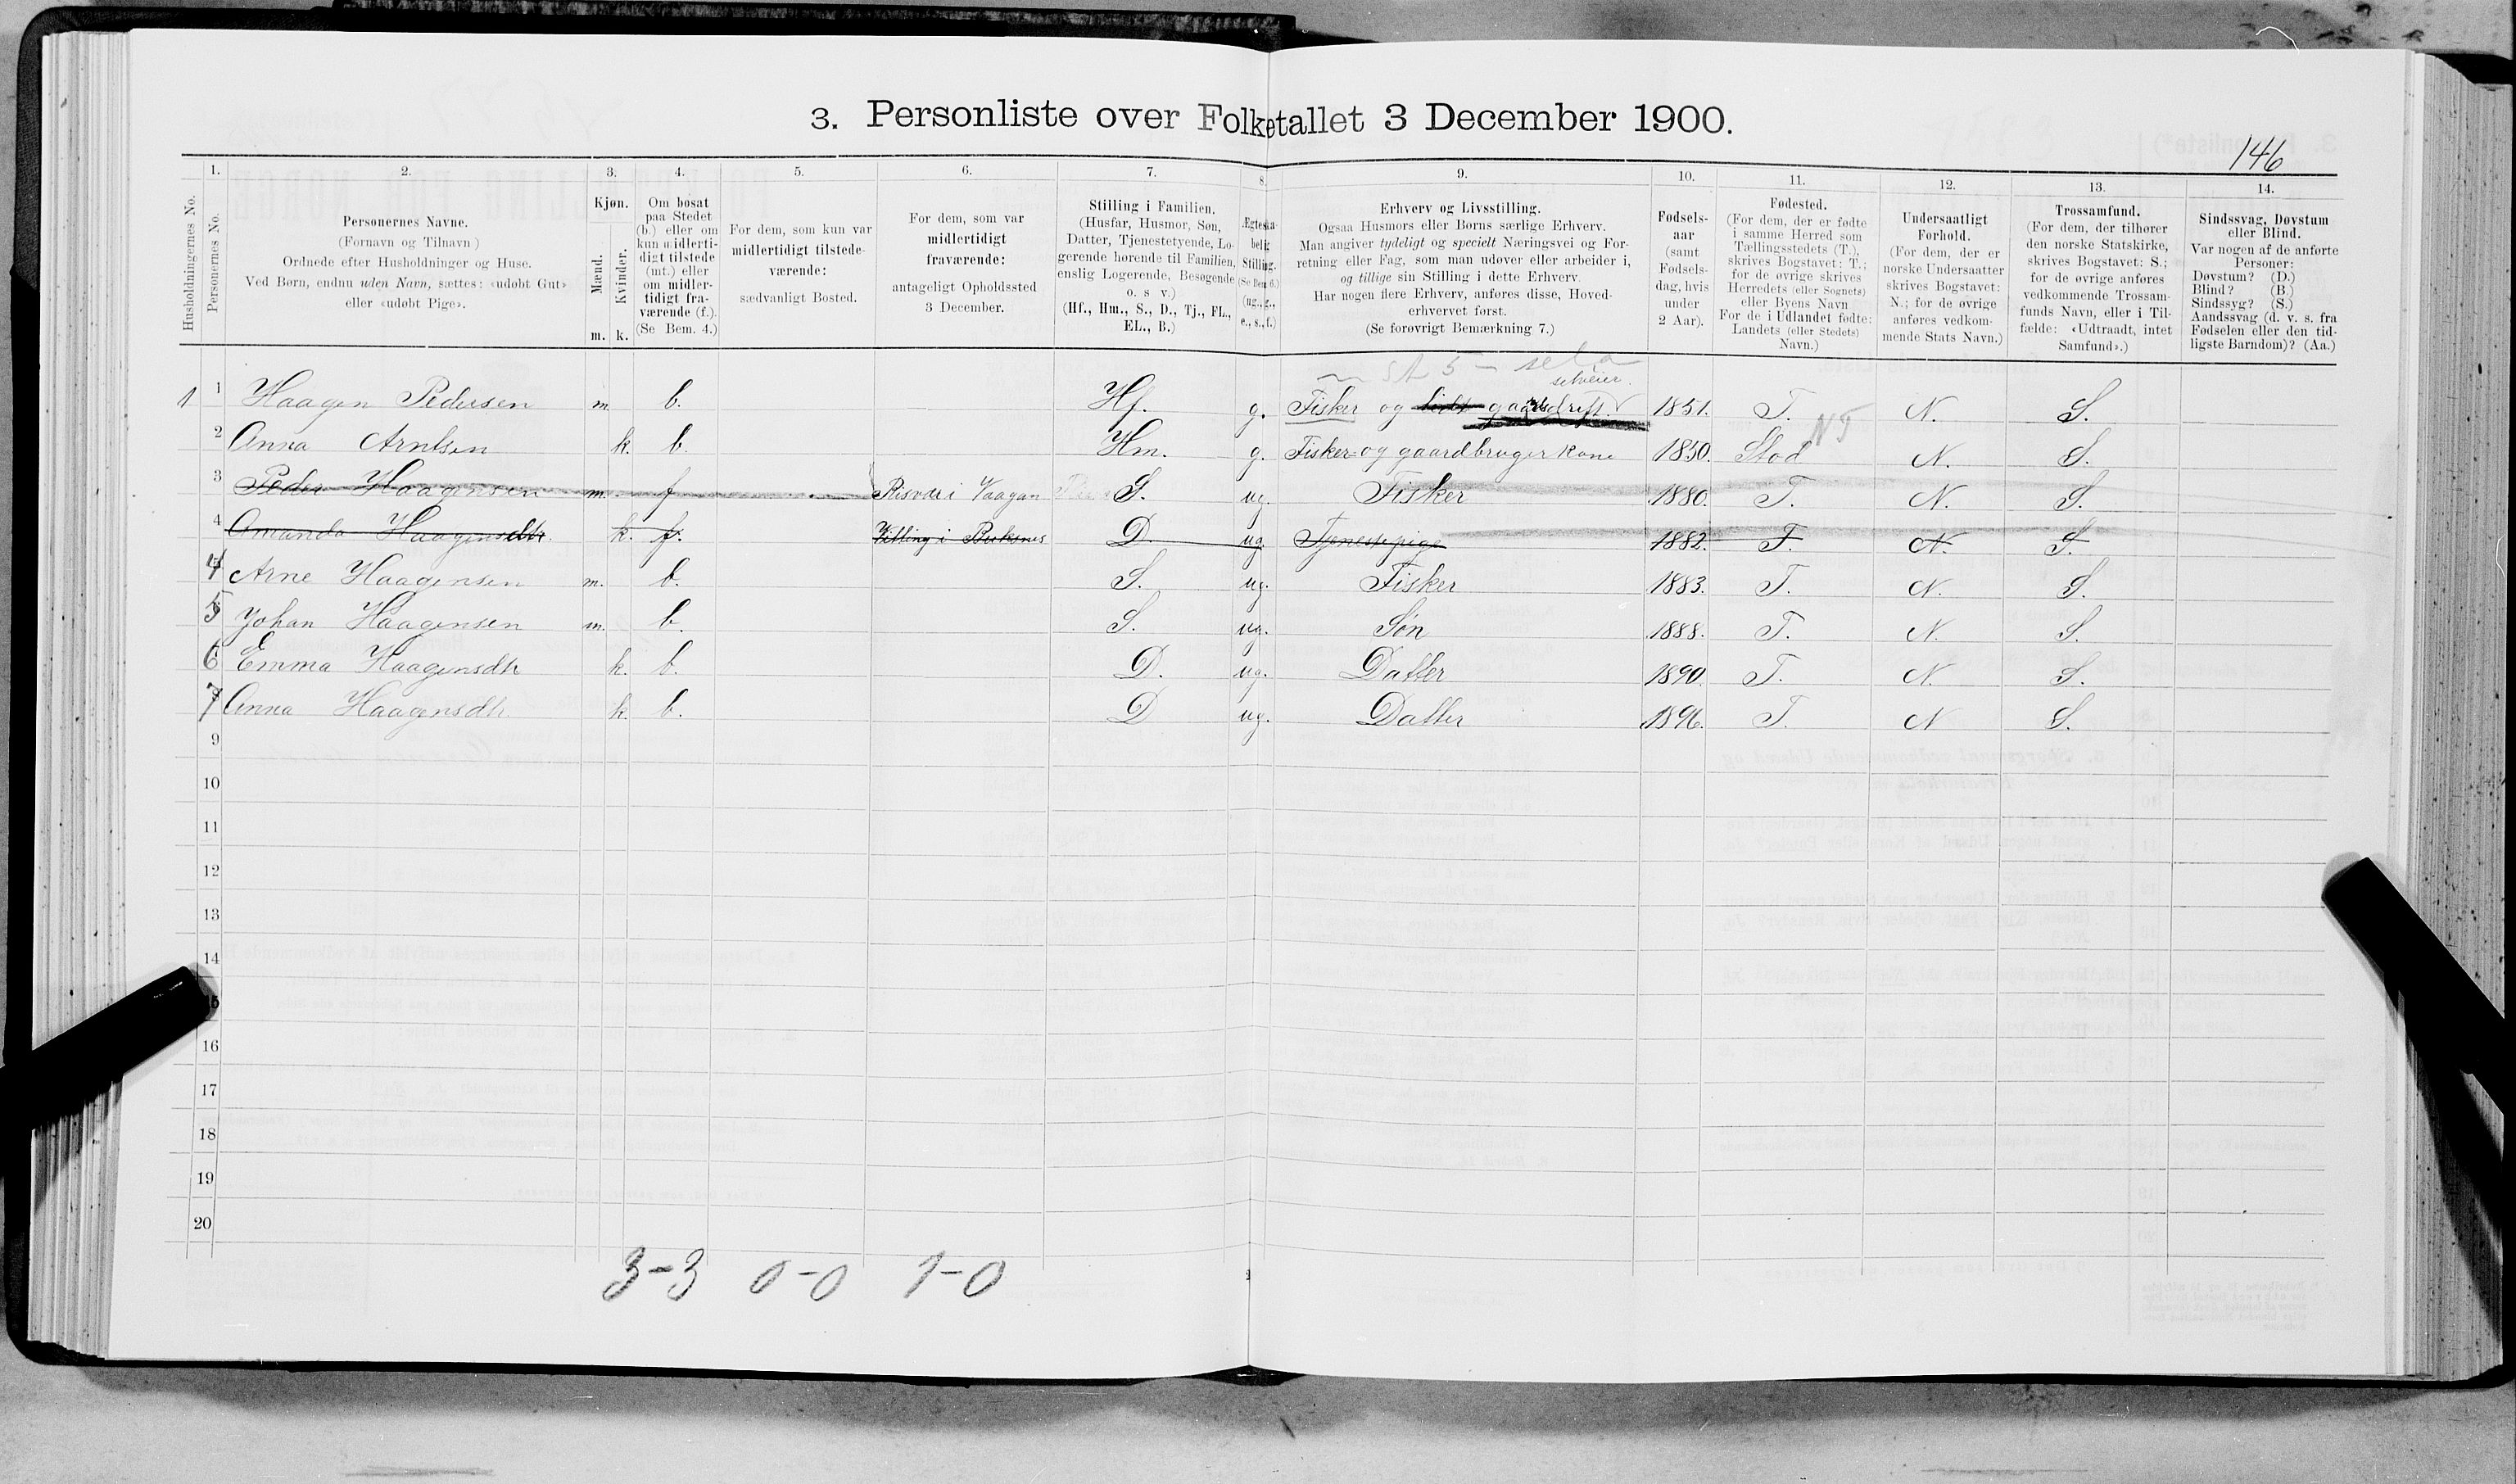 3. Personliste over Folketallet 3 December 1900.
146
Husholdningernes No.
1.
Personernes No.
2.
Personernes Navne.
(Fornavn og Tilnavn)
Ordnede efter Husholdninger og Huse.
Ved Børn, endnu uden Navn, sættes: «udøbt Gut»
eller «udøbt Pige».
3.
Kjøn.
Mænd.
Kvinder.
m. k.
4.
Om bosat
paa Stedet
(b.) eller om
kun midlerti-
digt tilstede
(mt.) eller
om midler-
tidigt fra-
værende (f.).
(Se Bem. 4.)
5.
For dem, som kun var
midlertidigt tilstede-
værende:
sædvanligt Bosted.
6.
For dem, som var
midlertidigt
fraværende:
antageligt Opholdssted
3 December.
7.
Stilling i Familien.
(Husfar, Husmor, Søn,
Datter, Tjenestetyende, Lo-
gerende hørende til Familien,
enslig Logerende, Besøgende
o. s v.)
(Hf., Hm., S., D., Tj., FL.,
EL., B.)
8.
Ægteska-
belig
Stilling.
(Se Bem. 6.)
(ug., g.,
e., s., f.)
9.
Erhverv og Livsstilling.
Ogsaa Husmors eller Børns særlige Erhverv.
Man angiver tydeligt og specielt Næringsvei og For-
retning eller Fag, som man udøver eller arbeider i,
og tillige sin Stilling i dette Erhverv.
Har nogen flere Erhverv, anføres disse, Hoved-
erhvervet først.
(Se forøvrigt Bemærkning 7.)
10.
Fødsels-
aar
(samt
Fødsels-
dag, hvis
under
2 Aar).
11.
Fødested.
(For dem, der er fødte
i samme Herred som
Tællingsstedets (T.),
skrives Bogstavet: T.;
for de øvrige skrives
Herredets (eller Sognets)
eller Byens Navn
For de i Udlandet fødte:
Landets (eller Stedets)
Navn.)
12.
Undersaatligt
Forhold.
(For dem, der er
norske Undersaatter
skrives Bogstavet:
N.; for de øvrige
anføres vedkom-
mende Stats Navn.)
13.
Trossamfund.
(For dem, der tilhører
den norske Statskirke,
skrives Bogstavet: S.;
for de øvrige anføres
vedkommende Trossam-
funds Navn, eller i Til-
fælde: «Udtraadt, intet
Samfund».)
14.
Sindssvag, Døvstum
eller Blind.
Var nogen af de anførte
Personer:
Døvstum? (D.)
Blind? (B.)
Sindssyg? (S.)
Aandssvag (d. v. s. fra
Fødselen eller den tid-
ligste Barndom)? (Aa.)
selveier.
1 1 Haagen Pedersen m. b. Hf. g. Fisker og lidt gaardsdrift. 1851. T. N. S.
2 Anna Arntsen k. b. Hm. g. Fisker og gaardbruger Kone 1850. Stod NT N. S.
3 Peder Haagensen m. f Risvær i Vaagan S. ug. Fisker 1880. T. N. S.
4 Amanda Haagensdtr. k. f. D. ug. Tjenestepige 1882. T. N. S.
4 Arne Haagensen m. b. S. ug. Fisker 1883. T. N. S.
5 Johan Haagensen m. b. S. ug. Søn 1888. T. N. S.
6 Emma Haagensdtr k. b. D. ug. Datter 1890. T. N. S.
7 Anna Haagensdtr. k. b. D ug. Datter 1896. T. N S.
9
10
11
12
13
14
15
16
17
18
19
20
3-3 0-0 1-0